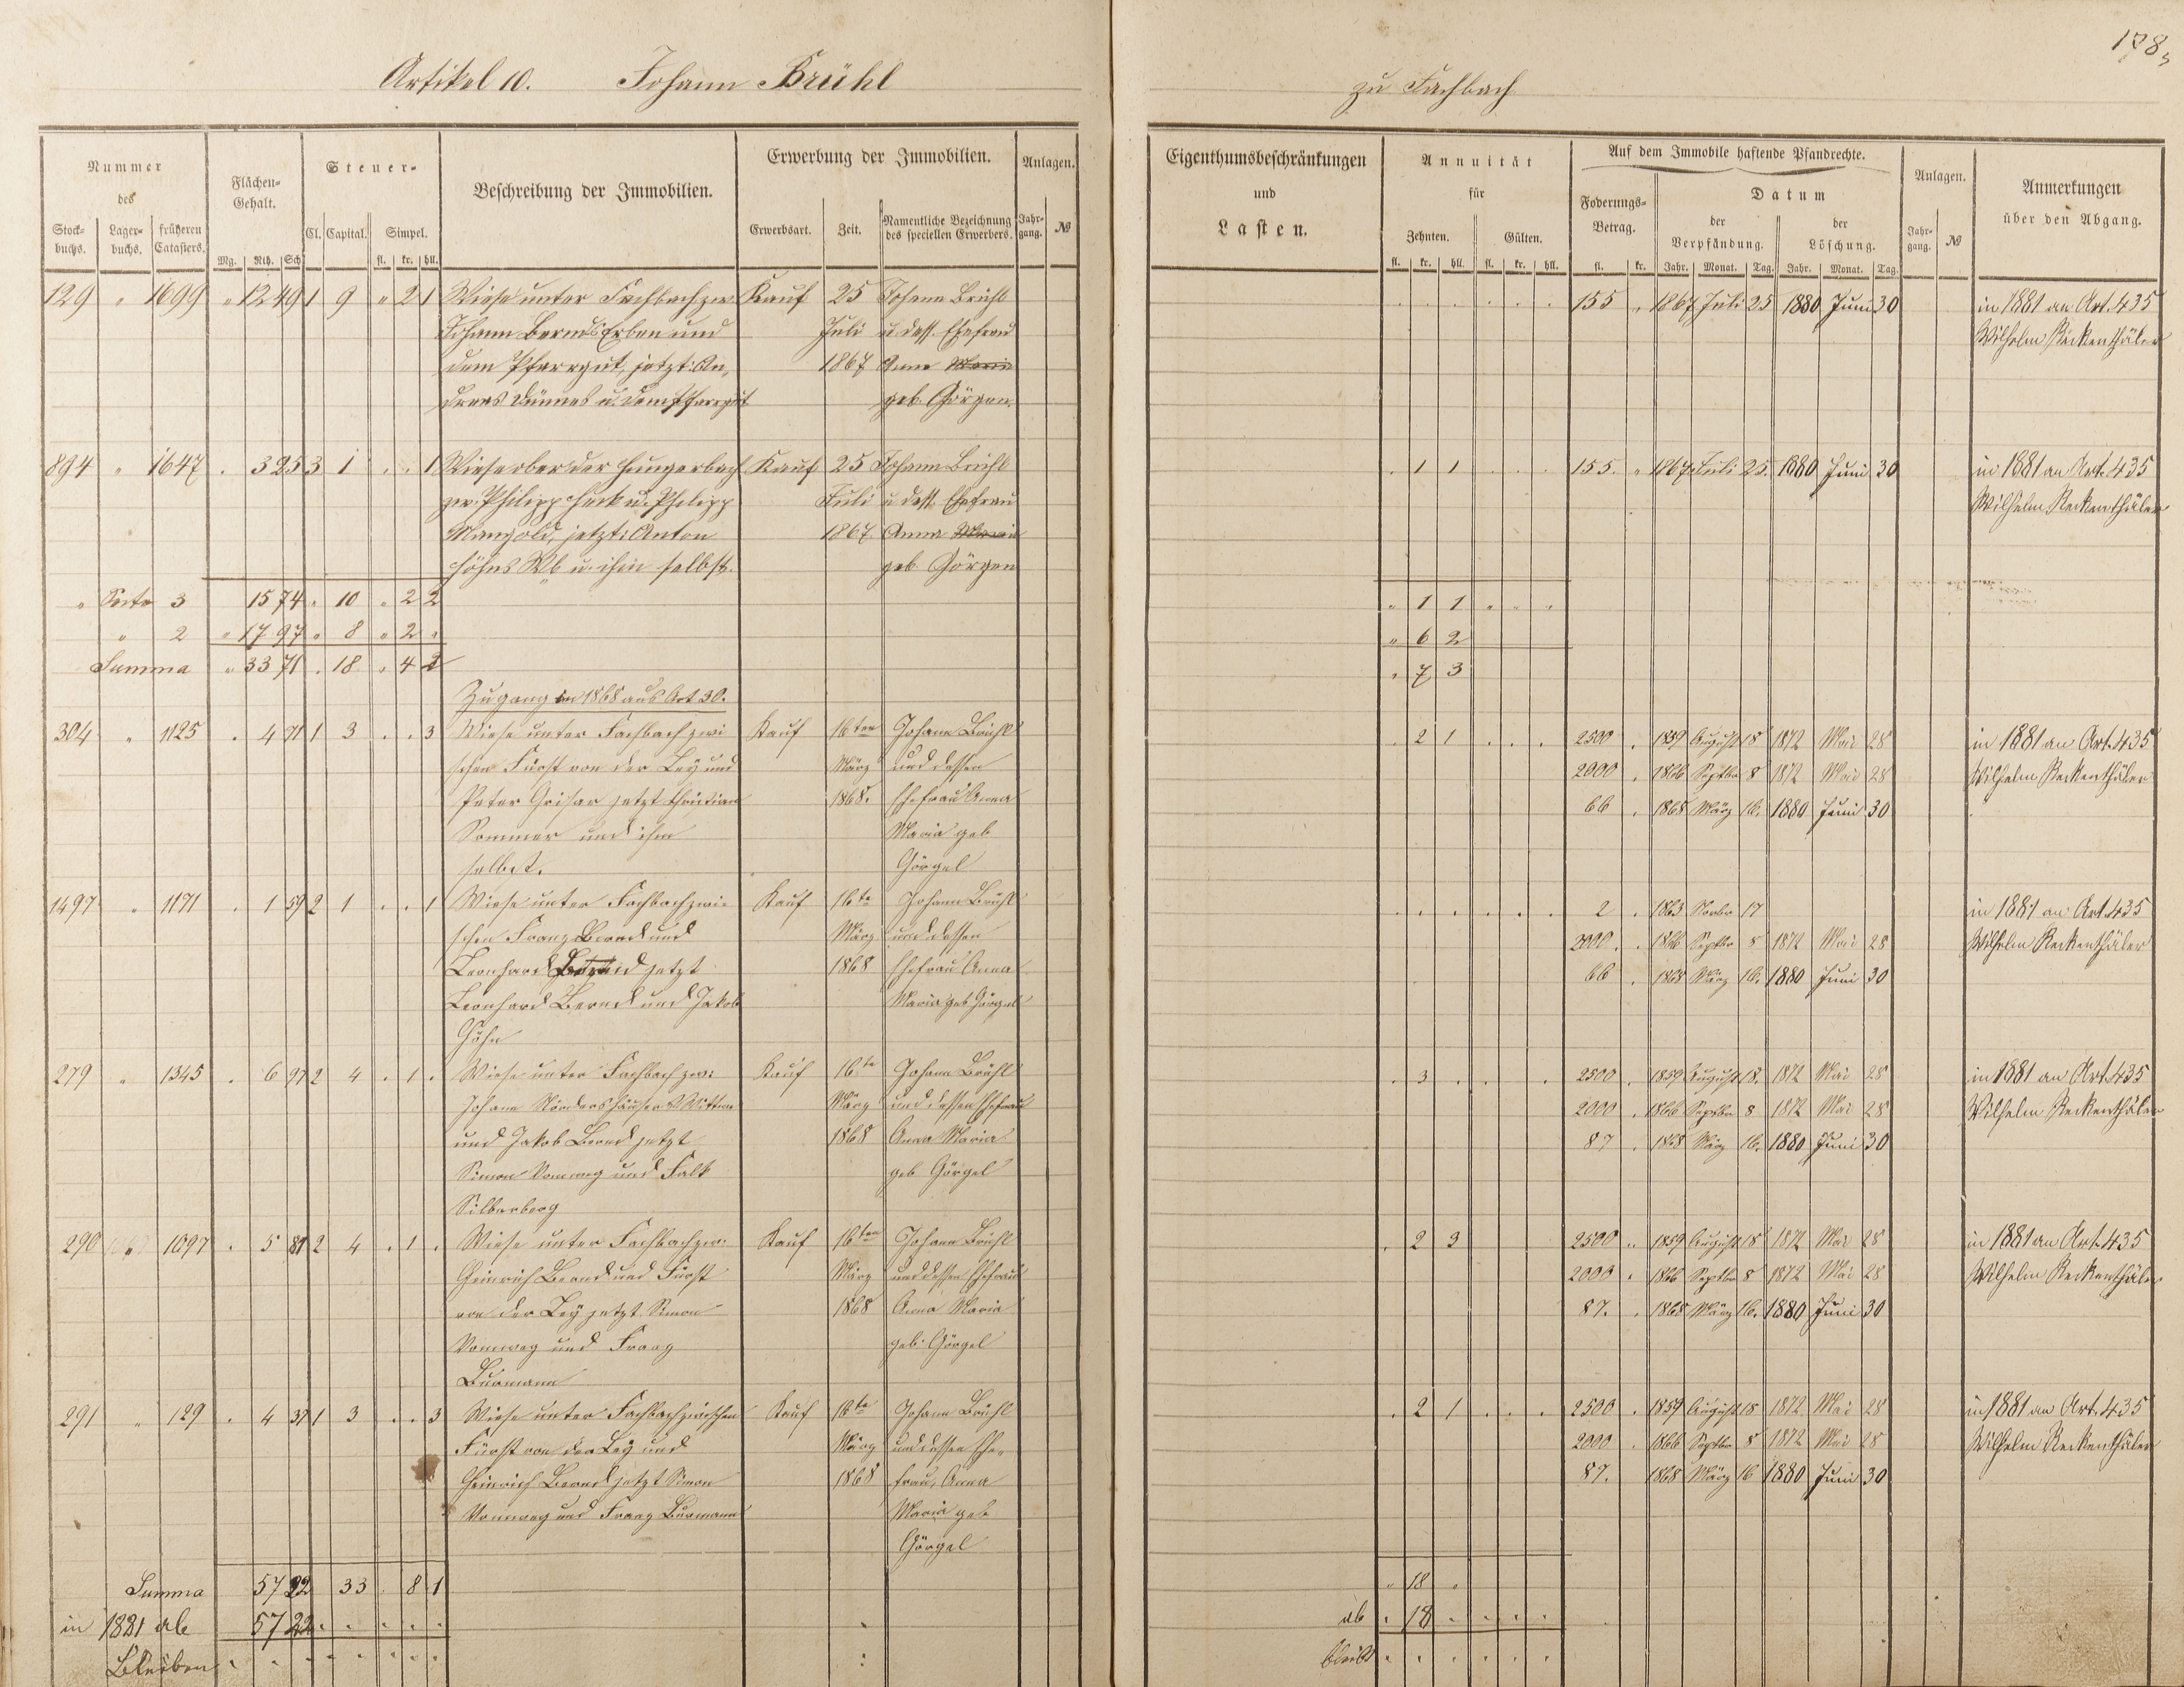 178,
Artikel 10. Johann Brühl
zu Fachbach
Nummer des
Stock-buchs. Lager-buchs. früheren Catasters.
Flächen-Gehalt.
Mg. Rth. Sch
Steuer-
Cl. Capital. Simpel.
fl. kr. hll.
Beschreibung der Immobilien.
Erwerbung der Immobilien.
Erwerbsart. Zeit. Namentliche Bezeichnung des speciellen Erwerbers.
Anlagen.
Jahr-gang. №
Eigenthumsbeschränkungen
und
Lasten.
Annuität
für
Zehnten. Gülten.
fl. kr. hll. fl. kr. hll.
Auf dem Immobile haftende Pfandrechte.
Foderungs-Betrag.
fl. kr.
Datum
der Verpfändung. der Löschung.
Jahr. Monat. Tag. Jahr. Monat. Tag.
Anlagen.
Jahr-gang. №
Anmerkungen
über den Abgang.
129 " 1699 " 12 49 1 9 " 2 1 Wiese unter Fachbach zw. Kauf 25 Johann Brühl 155 " 1867 Juli 25 1880 Juni 30 in 1881 an Art. 435
Johann Bernds Erben und Juli u. dess. Ehefrau Wilhelm Reckenthäler
dem Pfarrgut, jetzt: An- 1867 Anna Maria
dreas Dünnes u. dem Pfarrgut geb. Görgen
894 " 1647 . 3 25 3 1 . . 1 Wiese ober der Hungerbach Kauf 25 Johann Brühl . 1 1 . . . 155. " 1867 Juli 25. 1880 Juni 30 in 1881 an Art. 435
zw. Philipp Heck u. Philipp Juli u. dess. Ehefrau Wilhelm Reckenthäler
Mangold, jetzt: Anton 1867 Anna Maria
Höhns Wb u. ihm selbst. geb. Görgen
" Seite 3 15 74 . 10 " 2 2 " 1 1 " " "
" 2 " 17 97 " 8 " 2 " " 6 2
Summa " 33 71 . 18 " 4 2 " 7 3
Zugang in 1868 aus Art 30.
304 " 1125 . 4 71 1 3 . . 3 Wiese unter Fachbach zwi- Kauf 16ten Johann Brühl . 2 1 . . . 2500 . 1859 August 18 1872 Mai 28 in 1881 an Art. 435
schen Fürst von der Leÿ und März und dessen 2000 . 1866 Septbr 8 1872 Mai 28 Wilhelm Reckenthäler
Peter Grisar jetzt Christian 1868. Ehefrau Anna 66 . 1868 März 16. 1880 Juni 30
Sommer und ihm Maria geb
selbst. Görgel
1497 " 1171 . 1 59 2 1 . . 1 Wiese unter Fachbach zwi- Kauf 16te Johann Brühl . . . . . . 2 . 1863 Novbr 17 in 1881 an Art. 435
schen Franz Bernd und März und dessen 2000. . 1866 Septbr 8 1872 Mai 28 Wilhelm Reckenthäler
Leonhard jetzt 1868 Ehefrau Anna 66 . 1868 März 16. 1880 Juni 30
Leonhard Bernd und Jakob Maria geb Görgel
Höhn
279 " 1345 . 6 97 2 4 . 1 . Wiese unter Fachbach zw: Kauf 16te Johann Brühl . 3 . . . 2500 . 1859 August 18. 1872 Mai 28 in 1881 an Art. 435
Johann Wittwe März und dessen Ehefrau 2000 . 1866 Septbr 8 1872 Mai 28 Wilhelm Reckenthäler
und Jakob Bernd jetzt 1868 Anna Maria 87 . 1868 März 16. 1880 Juni 30
Simon Vomweg und Falk geb Görgel
Silberberg
290 " 1097 . 5 81 2 4 . 1 . Wiese unter Fachbach zw: Kauf 16ten Johann Brühl . 2 3 2500 " 1859 August 18 1872 Mai 28 in 1881 an Art. 435
Heinrich Bernd und Fürst März und dessen Ehefrau 2000 . 1866 Septbr 8 1872 Mai 28 Wilhelm Reckenthäler
von der Leÿ jetzt Simon 1868 Anna Maria 87. . 1868 März 16. 1880 Juni 30
Vomweg und Franz geb: Görgel
Burmann
291 " 129 . 4 37 1 3 . . 3 Wiese unter Fachbach zwischen Kauf 16te Johann Brühl . 2 1 . . . 2500 . 1859 August 18 1872 Mai 28 in 1881 an Art. 435
Fürst von der Leÿ und März und dessen Ehe- 2000 . 1866 Septbr 8 1872 Mai 28 Wilhelm Reckenthäler
Heinrich Bernd jetzt Simon 1868 frau, Anna 87. 1868 März 16 1880 Juni 30
Vomweg und Franz Burmann Maria geb
Görgel
Summa 57 22 33 . 8 1 " 18 "
in 1881 ab 57 22 . . . . . ab " 18 . . . .
Bleiben . . . . . . . . bleibt . . . . . .